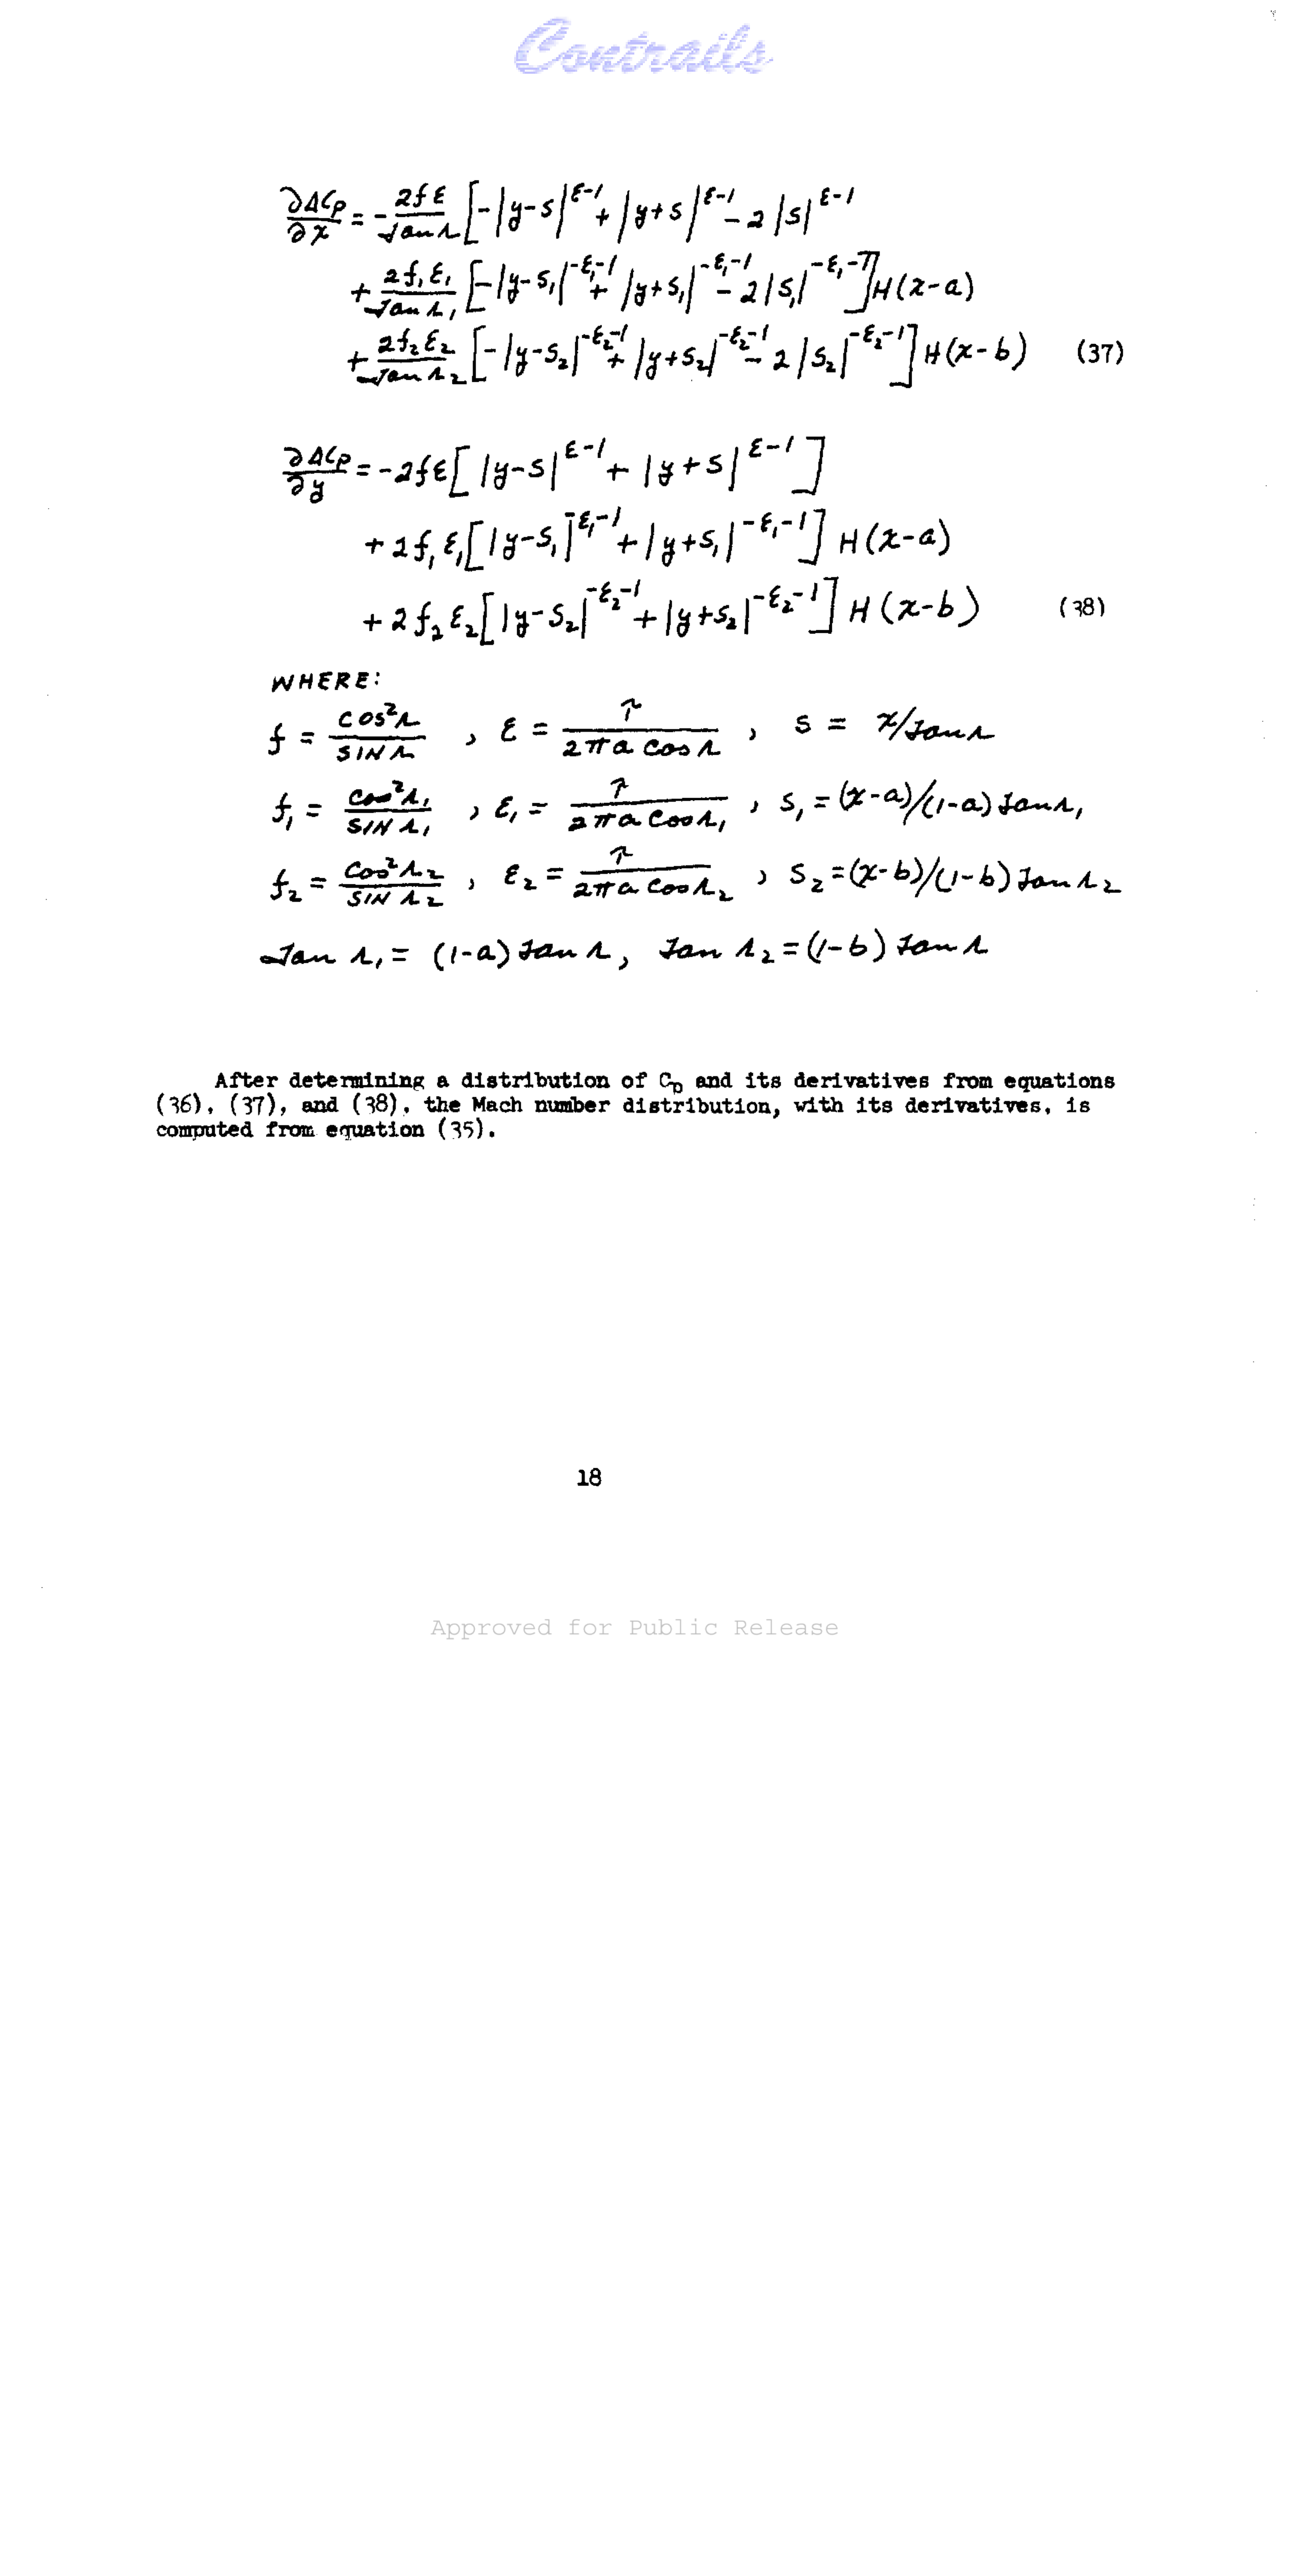 Contrails
∂ΔCp/∂x = - 2fε/tan Λ [-|y-s|^ε-1 + |y+s|^ε-1 - 2|s|^ε-1
+ 2f₁ε₁/tan Λ₁ [-|y-s₁|^-ε₁-1 + |y+s₁|^-ε₁-1 - 2|s₁|^-ε₁-1] H(x-a)
+ 2f₂ε₂/tan Λ₂ [-|y-s₂|^-ε₂-1 + |y+s₂|^-ε₂-1 - 2|s₂|^-ε₂-1] H(x-b) (37)
∂ΔCp/∂y = -2fε[|y-s|^ε-1 + |y+s|^ε-1]
+ 2f₁ε₁[|y-s₁|^-ε₁-1 + |y+s₁|^-ε₁-1] H(x-a)
+ 2f₂ε₂[|y-s₂|^-ε₂-1 + |y+s₂|^-ε₂-1] H(x-b) (38)
WHERE:
f = cos²Λ/SIN Λ , ε = τ/2πa cos Λ , s = x/tan Λ
f₁ = cos²Λ₁/SIN Λ₁ , ε₁ = τ/2πa cos Λ₁ , s₁ = (x-a)/(1-a) tan Λ₁
f₂ = cos²Λ₂/SIN Λ₂ , ε₂ = τ/2πa cos Λ₂ , s₂ = (x-b)/(1-b) tan Λ₂
tan Λ₁ = (1-a) tan Λ, tan Λ₂ = (1-b) tan Λ
After determining a distribution of Cp and its derivatives from equations
(36), (37), and (38), the Mach number distribution, with its derivatives, is
computed from equation (35).
18
Approved for Public Release